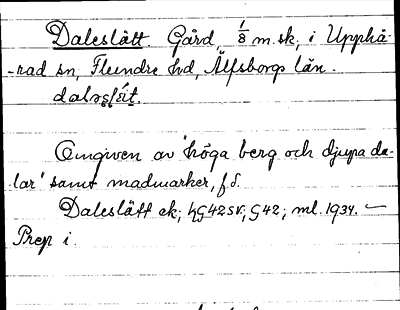 Daleslätt. Gård, 1/8 m.sk, i Upphä-
-rad sn, Flundre hd, Älfsborgs län.
Omgiven av "höga berg och djupa da-
lar" samt madmarker, f.d.
Daleslätt ek; hG42SV; G42; ml. 1934. —
Prep i.